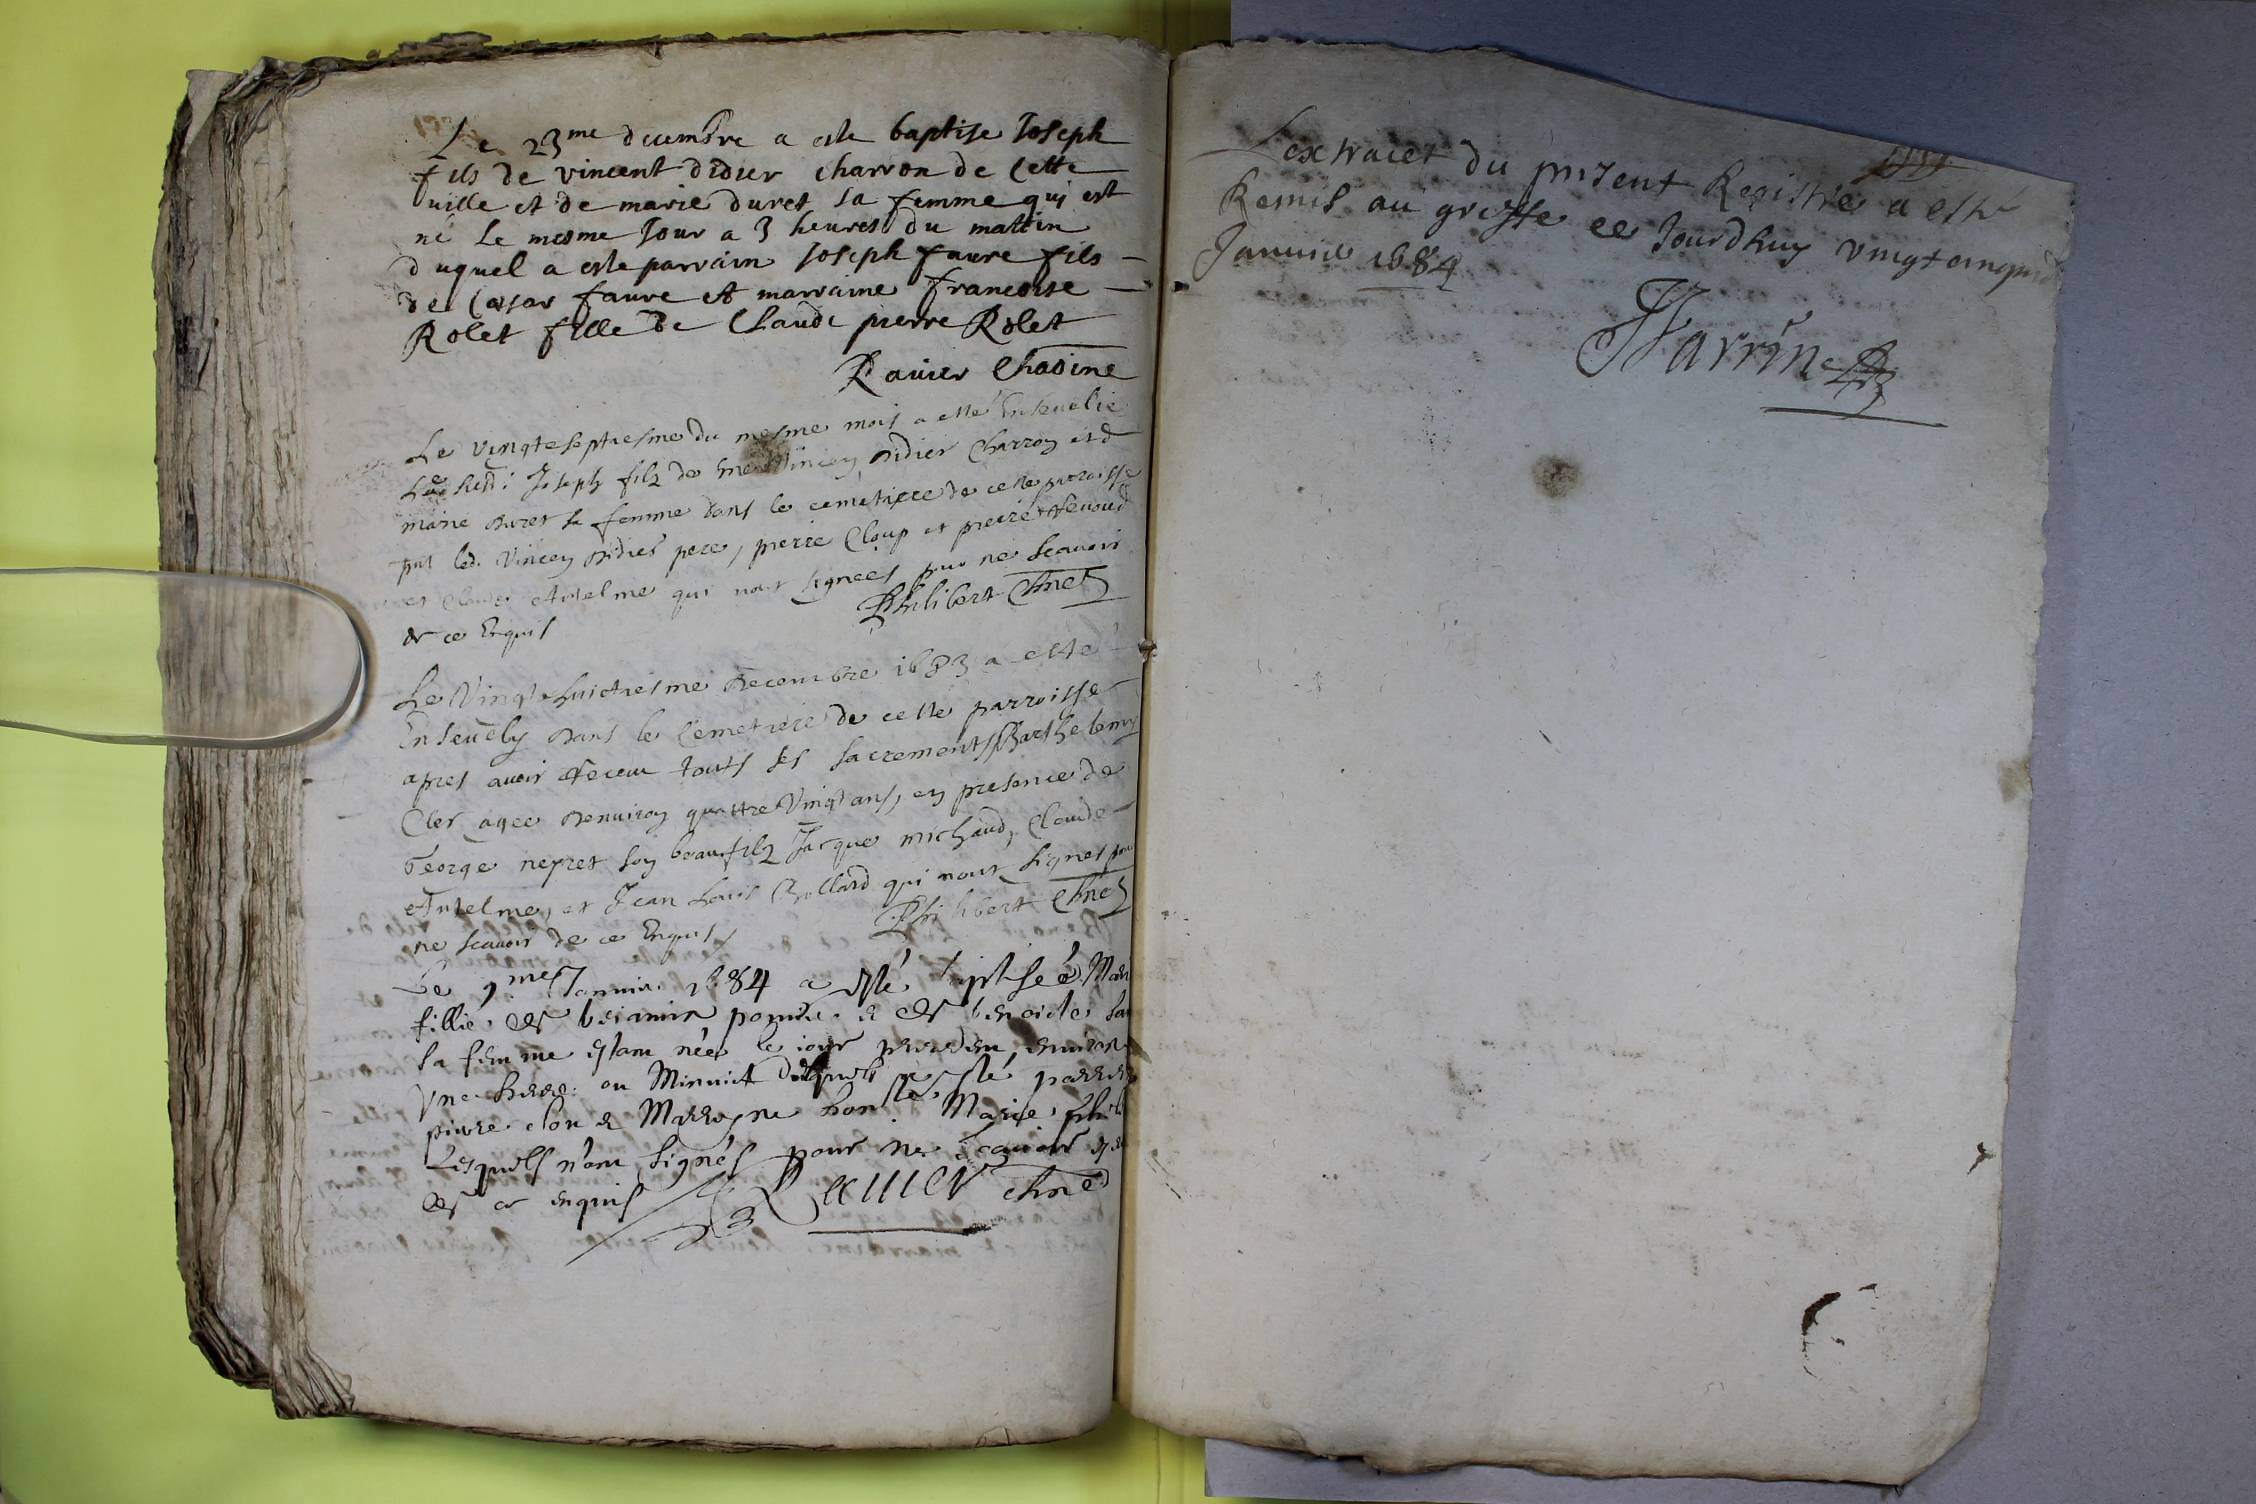 Le 23me decembre a este baptise Joseph
fils de vincent didier charron de cette
ville et de marie duret sa femme qui est
né le mesme Jour a 3 heures du mattin
duquel a este parrain Joseph faure fils
de Cæsar faure et marraine francoise
Rolet fille de Claude pierre Rolet
Ravier Chãoine
Le vingteseptiesme du mesme mois a esté Ensevelie
Joseph filz de Vincen didier Charron et d
marie Duret sa femme dans le cemetiere de cette parroisse
pnt led. Vincen didier pere, pierre Cloup et pierre
et Claude Antelme qui n'ont signees pour ne scavoir
de ce Enquis
Philibert Chne
Le Vingt huictiesme Decembre 1683 a esté
Ensevely Dans le Cemetiere de cette parroisse
apres avoir Receu touts ses sacrements Barthelemy
Cler agee Denviron quattre Vingt ans, en presence de
George nepret son beaufilz Jacque michaud, Claude
Antelme, et Jean Louis Rollard qui n'ont signes pour
ne scavoir de ce Enquis
Philibert Chne
Le 1me Janvier 1684 a esté baptiseé Mari
fillie de beniamin et de benoicte
sa femme estant née le iour precedent environ
Vne heure ou Minuict a esté parrein
pierre clou & Marrayne honste Marie
Lesquels n'ont signés pour ne scavoir
de ce enquis
Ravier chne
Lextraict du present Registre a esté
Remis au greffe ce Jourdhuy vingtcinquie
Janvier 1684
Warrin